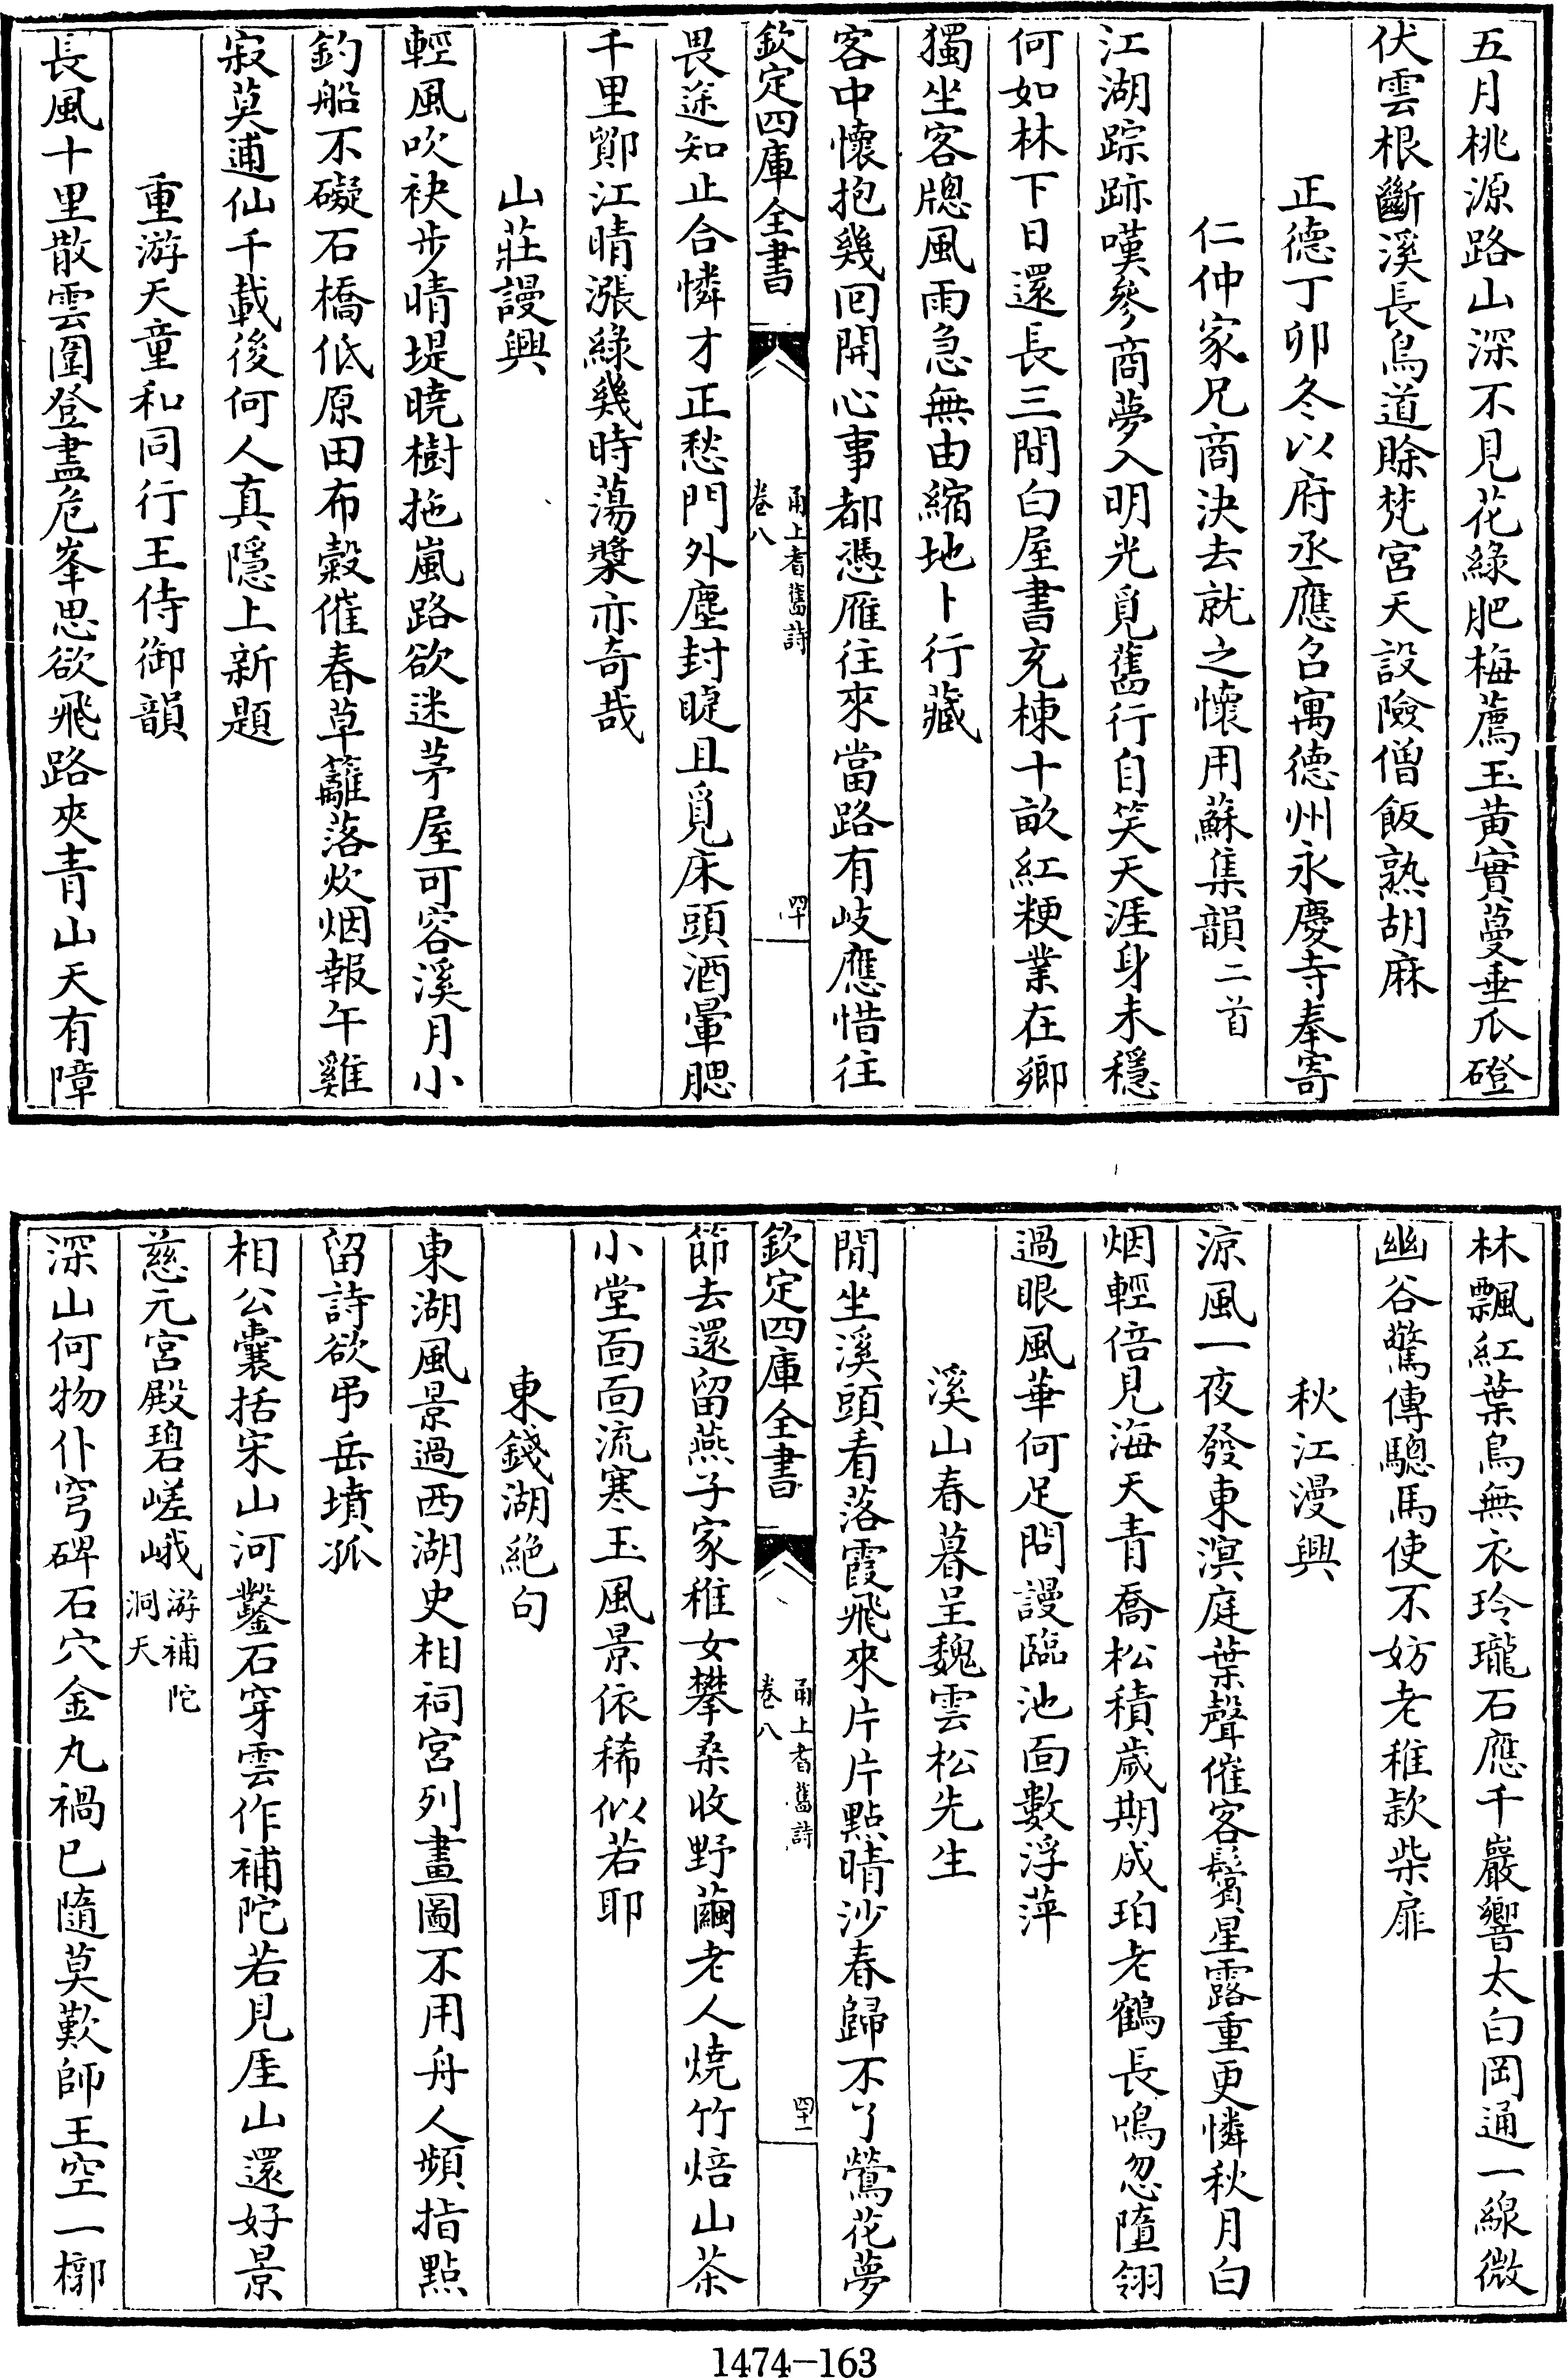 五月桃源路山深不見花綠肥梅薦玉黄實蔓垂瓜磴
伏雲根斷溪長鳥道賖梵宫天設險僧飯熟胡麻
正德丁卯冬以府丞應召寓德州永慶寺奉寄
仁仲家兄商決去就之懷用蘇集韻二首
江湖踪跡嘆參商夢入明光覓舊行自笑天涯身未穩
何如林下日還長三間白屋書充棟十畝紅粳業在鄉
獨坐客牕風雨急無由縮地卜行藏
客中懷抱幾回開心事都憑雁往來當路有岐應惜往
欽定四庫全書
甬上耆舊詩
卷八
四十
畏途知止合憐才正愁門外塵封睫且覓床頭酒暈腮
千里鄞江晴漲綠幾時蕩槳亦奇哉
山莊謾興
輕風吹袂步晴堤曉樹拖嵐路欲迷茅屋可容溪月小
釣船不礙石橋低原田布穀催春草籬落炊烟報午雞
寂莫逋仙千載後何人真隱上新題
重游天童和同行王侍御韻
長風十里散雲圍登盡危峯思欲飛路夾青山天有障
林飄紅葉鳥無衣玲瓏石應千巖響太白岡通一線微
幽谷驚傳驄馬使不妨老稚款柴扉
秋江漫興
涼風一夜發東溟庭葉聲催客鬢星露重更憐秋月白
烟輕倍見海天青喬松積歲期成珀老鶴長鳴忽墮翎
過眼風華何足問謾臨池面數浮萍
溪山春暮呈魏雲松先生
閒坐溪頭看落霞飛來片片點晴沙春歸不了鶯花夢
欽定四庫全書
甬上耆舊詩
卷八
四十一
節去還留燕子家稚女攀桑收野繭老人燒竹焙山茶
小堂面面流寒玉風景依稀似若耶
東錢湖絕句
東湖風景過西湖史相祠宫列畫圖不用舟人頻指點
留詩欲弔岳墳孤
相公囊括宋山河鑿石穿雲作補陀若見厓山還好景
慈元宫殿碧嵯峨游補陀洞天
深山何物仆穹碑石穴金丸禍已隨莫歎師王空一槨
1474-163